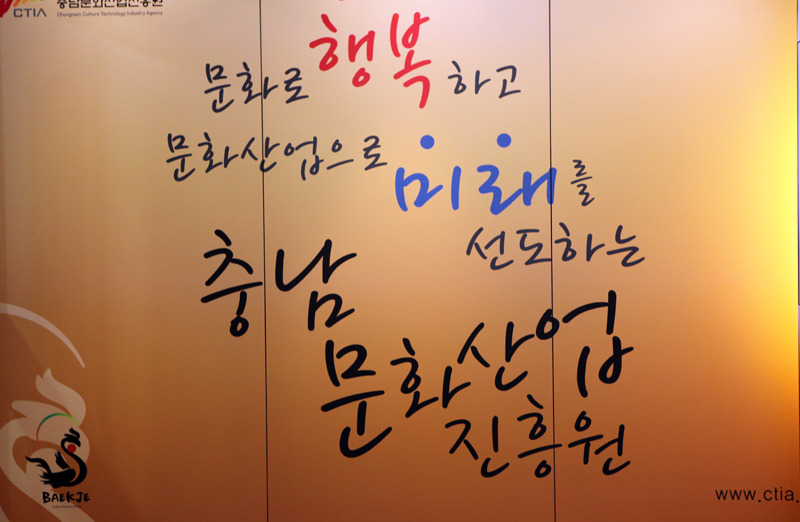 CTIA
충남문화산업진흥원
Chungnam Culture Technology Industry Agency
문화로 행복하고
문화산업으로 미래를
선도하는
충남
문화산업
진흥원
BAEKJE
www.ctia.